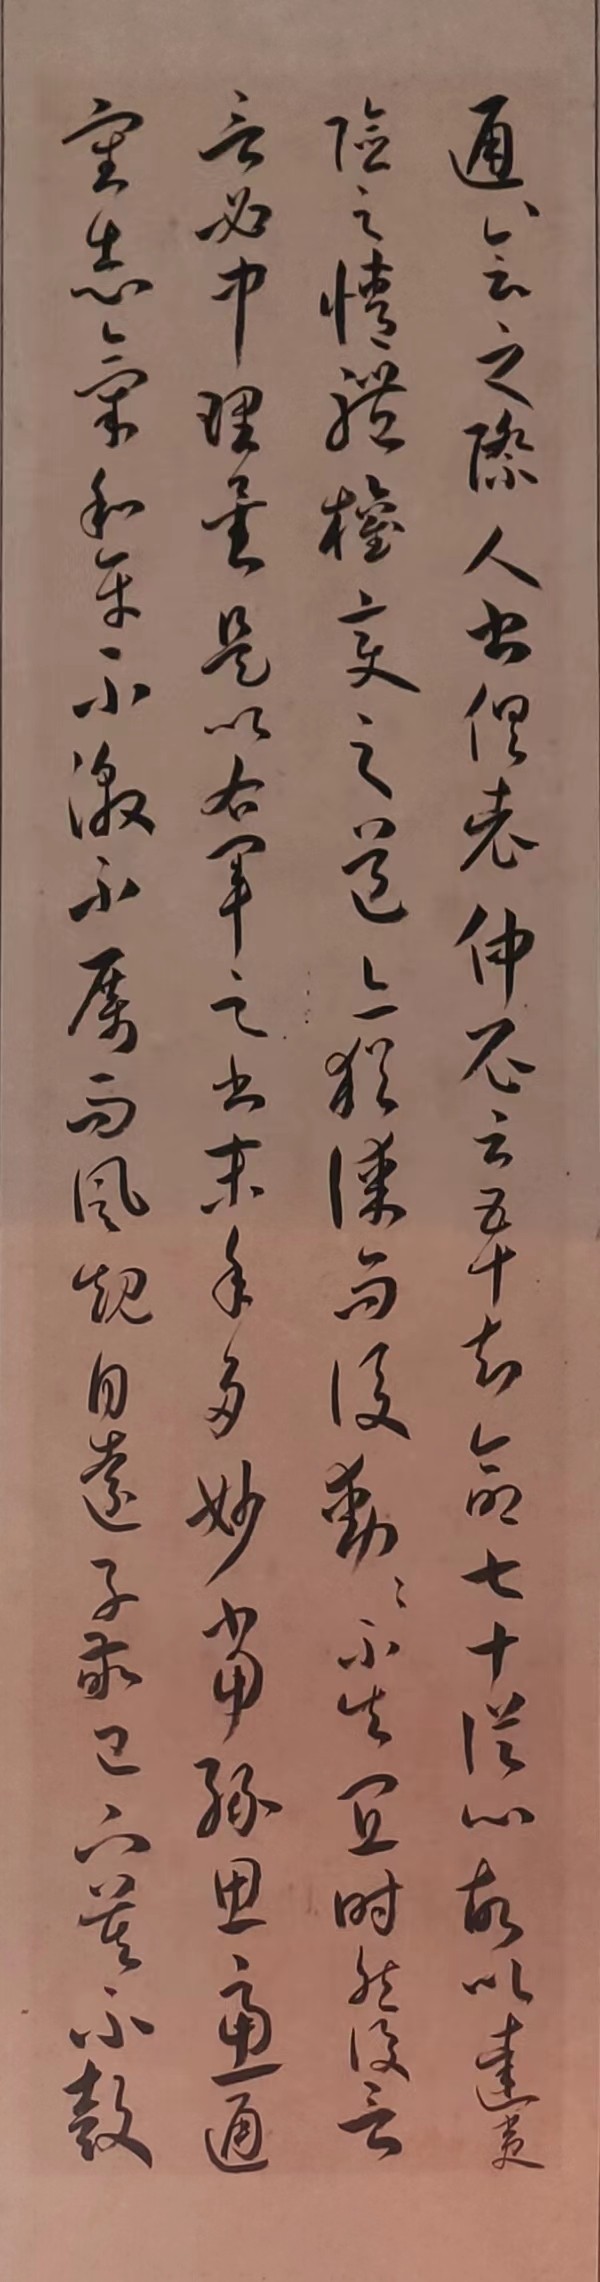 通會之際人書俱老仲尼云五十知命七十從心故以達夷
險之情體權變之道亦猶謀而後動動不失宜時然後言
言必中理矣是以右軍之書末年多妙當緣思慮通
審志氣和平不激不厲而風規自遠子敬已下莫不鼓